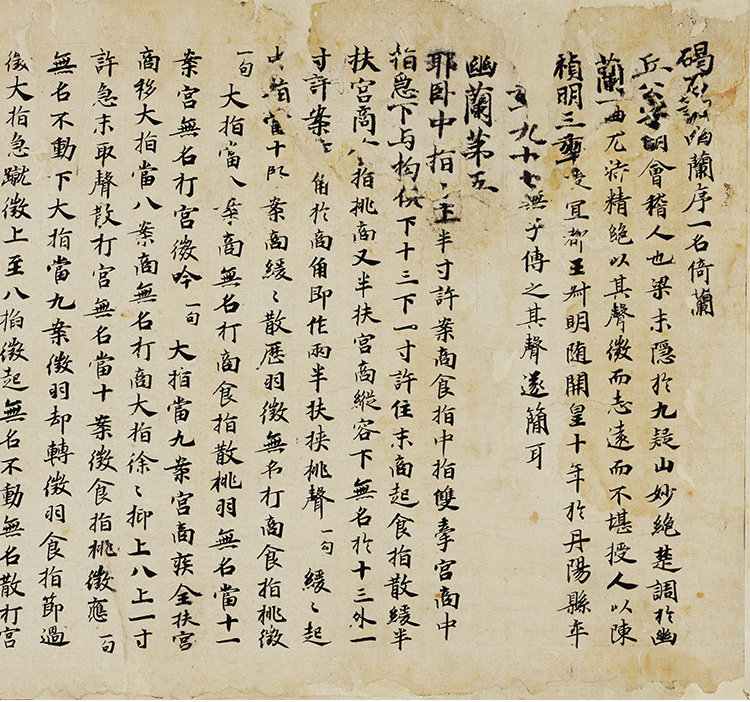 碣石調幽蘭序一名倚蘭
丘公字明會稽人也梁末隱於九疑山妙絕楚調於幽
蘭一曲尤特精絕以其聲微而志遠而不堪授人以陳
禎明三年授宜都王叔明随開皇十年於丹陽縣卒
年九十七無子傳之其聲遂簡耳
幽蘭第五
耶卧中指半寸許案商食指中指雙牽宮商中
指急下与拘俱下十三下一寸許住末商起食指散緩半
扶宮商食指挑商又半扶宮商縱容下無名於十三外一
寸許案商角於商角即作兩半扶挟挑聲一句緩〻起
中指當十案商緩〻散歷羽徵無名打商食指挑徵
一句大指當八案商無名打商食指散挑羽無名當十一
案宮無名打宮徵吟一句大指當九案宮商疾全扶宮
商移大指當八案商無名打商大指徐〻抑上八上一寸
許急末取聲散打宮無名當十案徵食指挑徵應一句
無名不動下大指當九案徵羽却轉徵羽食指節過
徵大指急蹴徵上至八指徵起無名不動無名散打宮